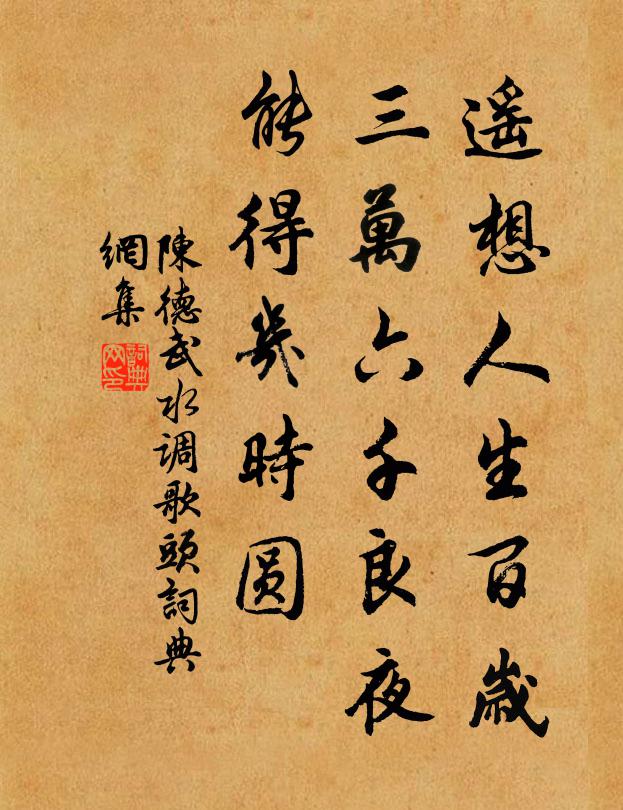 遥想人生百歲
三萬六千良夜
能得幾時圆
陳德武水调歌頭詞典
網集
詞典
网印